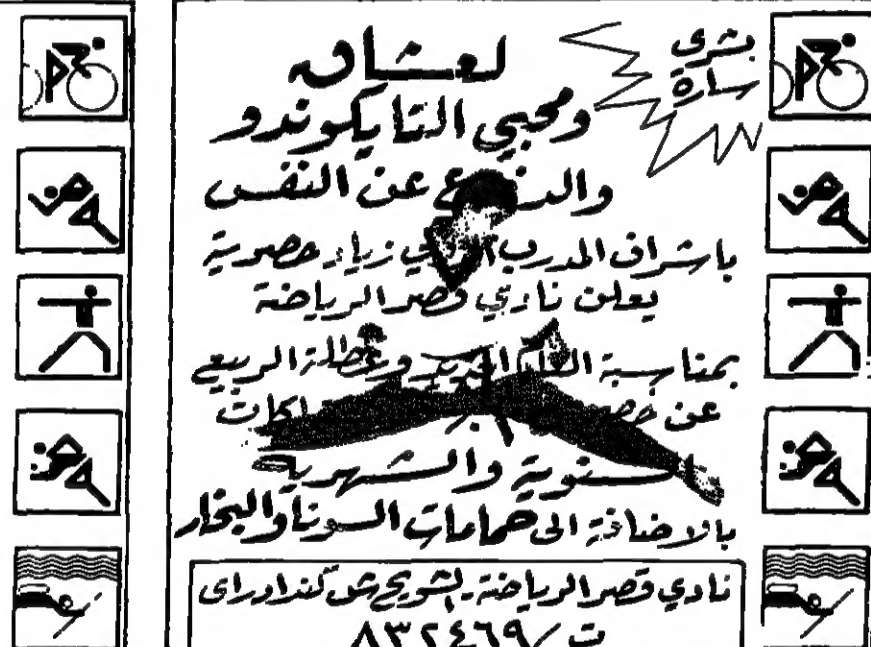 بشرى
سارة
لعشاق
ومحبي التايكوندو
والدفاع عن النفس
باشراف المدرب الدولي زياد حصرية
يعلن نادي قصر الرياضة
بمناسبة العام الجديد وعطلة الربيع
عن اكات
سنوية والشهرية
بالاضافة الى حمامات السونا والبخار
نادي قصر الرياضة - الشويخ ش كندادراي
ت / ٨٣٢٤٦٩